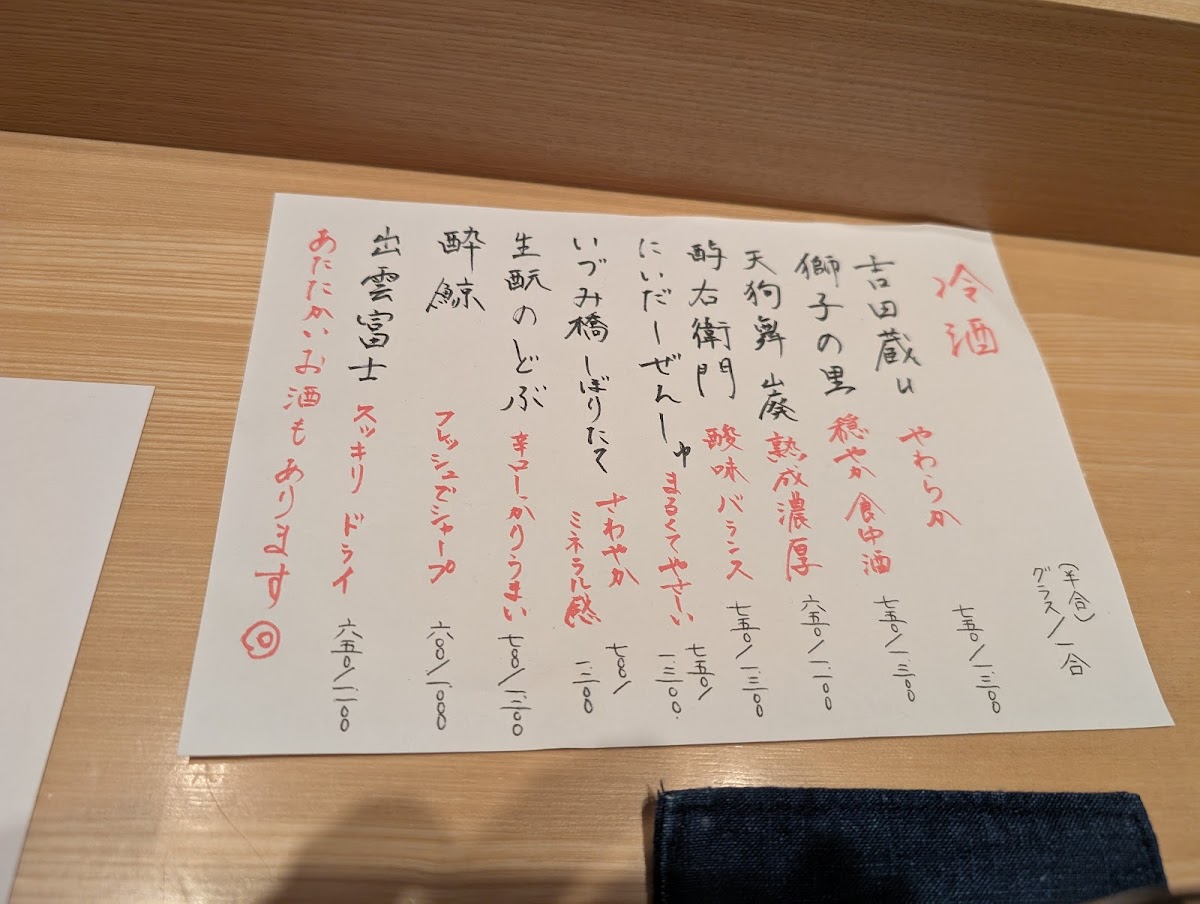 冷酒
(半合)
グラス/一合
吉田蔵u やわらか 七五〇/一三〇〇
獅子の里 穏やか 食中酒 七五〇/一三〇〇
天狗舞 山廃 熟成濃厚 六五〇/一二〇〇
酉与右衛門 酸味バランス 七五〇/一三〇〇
にいだしぜんしゅ まるくてやさしい 七五〇/一三〇〇
いづみ橋 しぼりたて さわやか
ミネラル感 七〇〇/一二〇〇
生酛のどぶ 辛口しっかりうまい 七〇〇/一三〇〇
酔鯨 フレッシュでシャープ 六〇〇/一〇〇〇
出雲富士 スッキリ ドライ 六五〇/一二〇〇
あたたかいお酒もあります